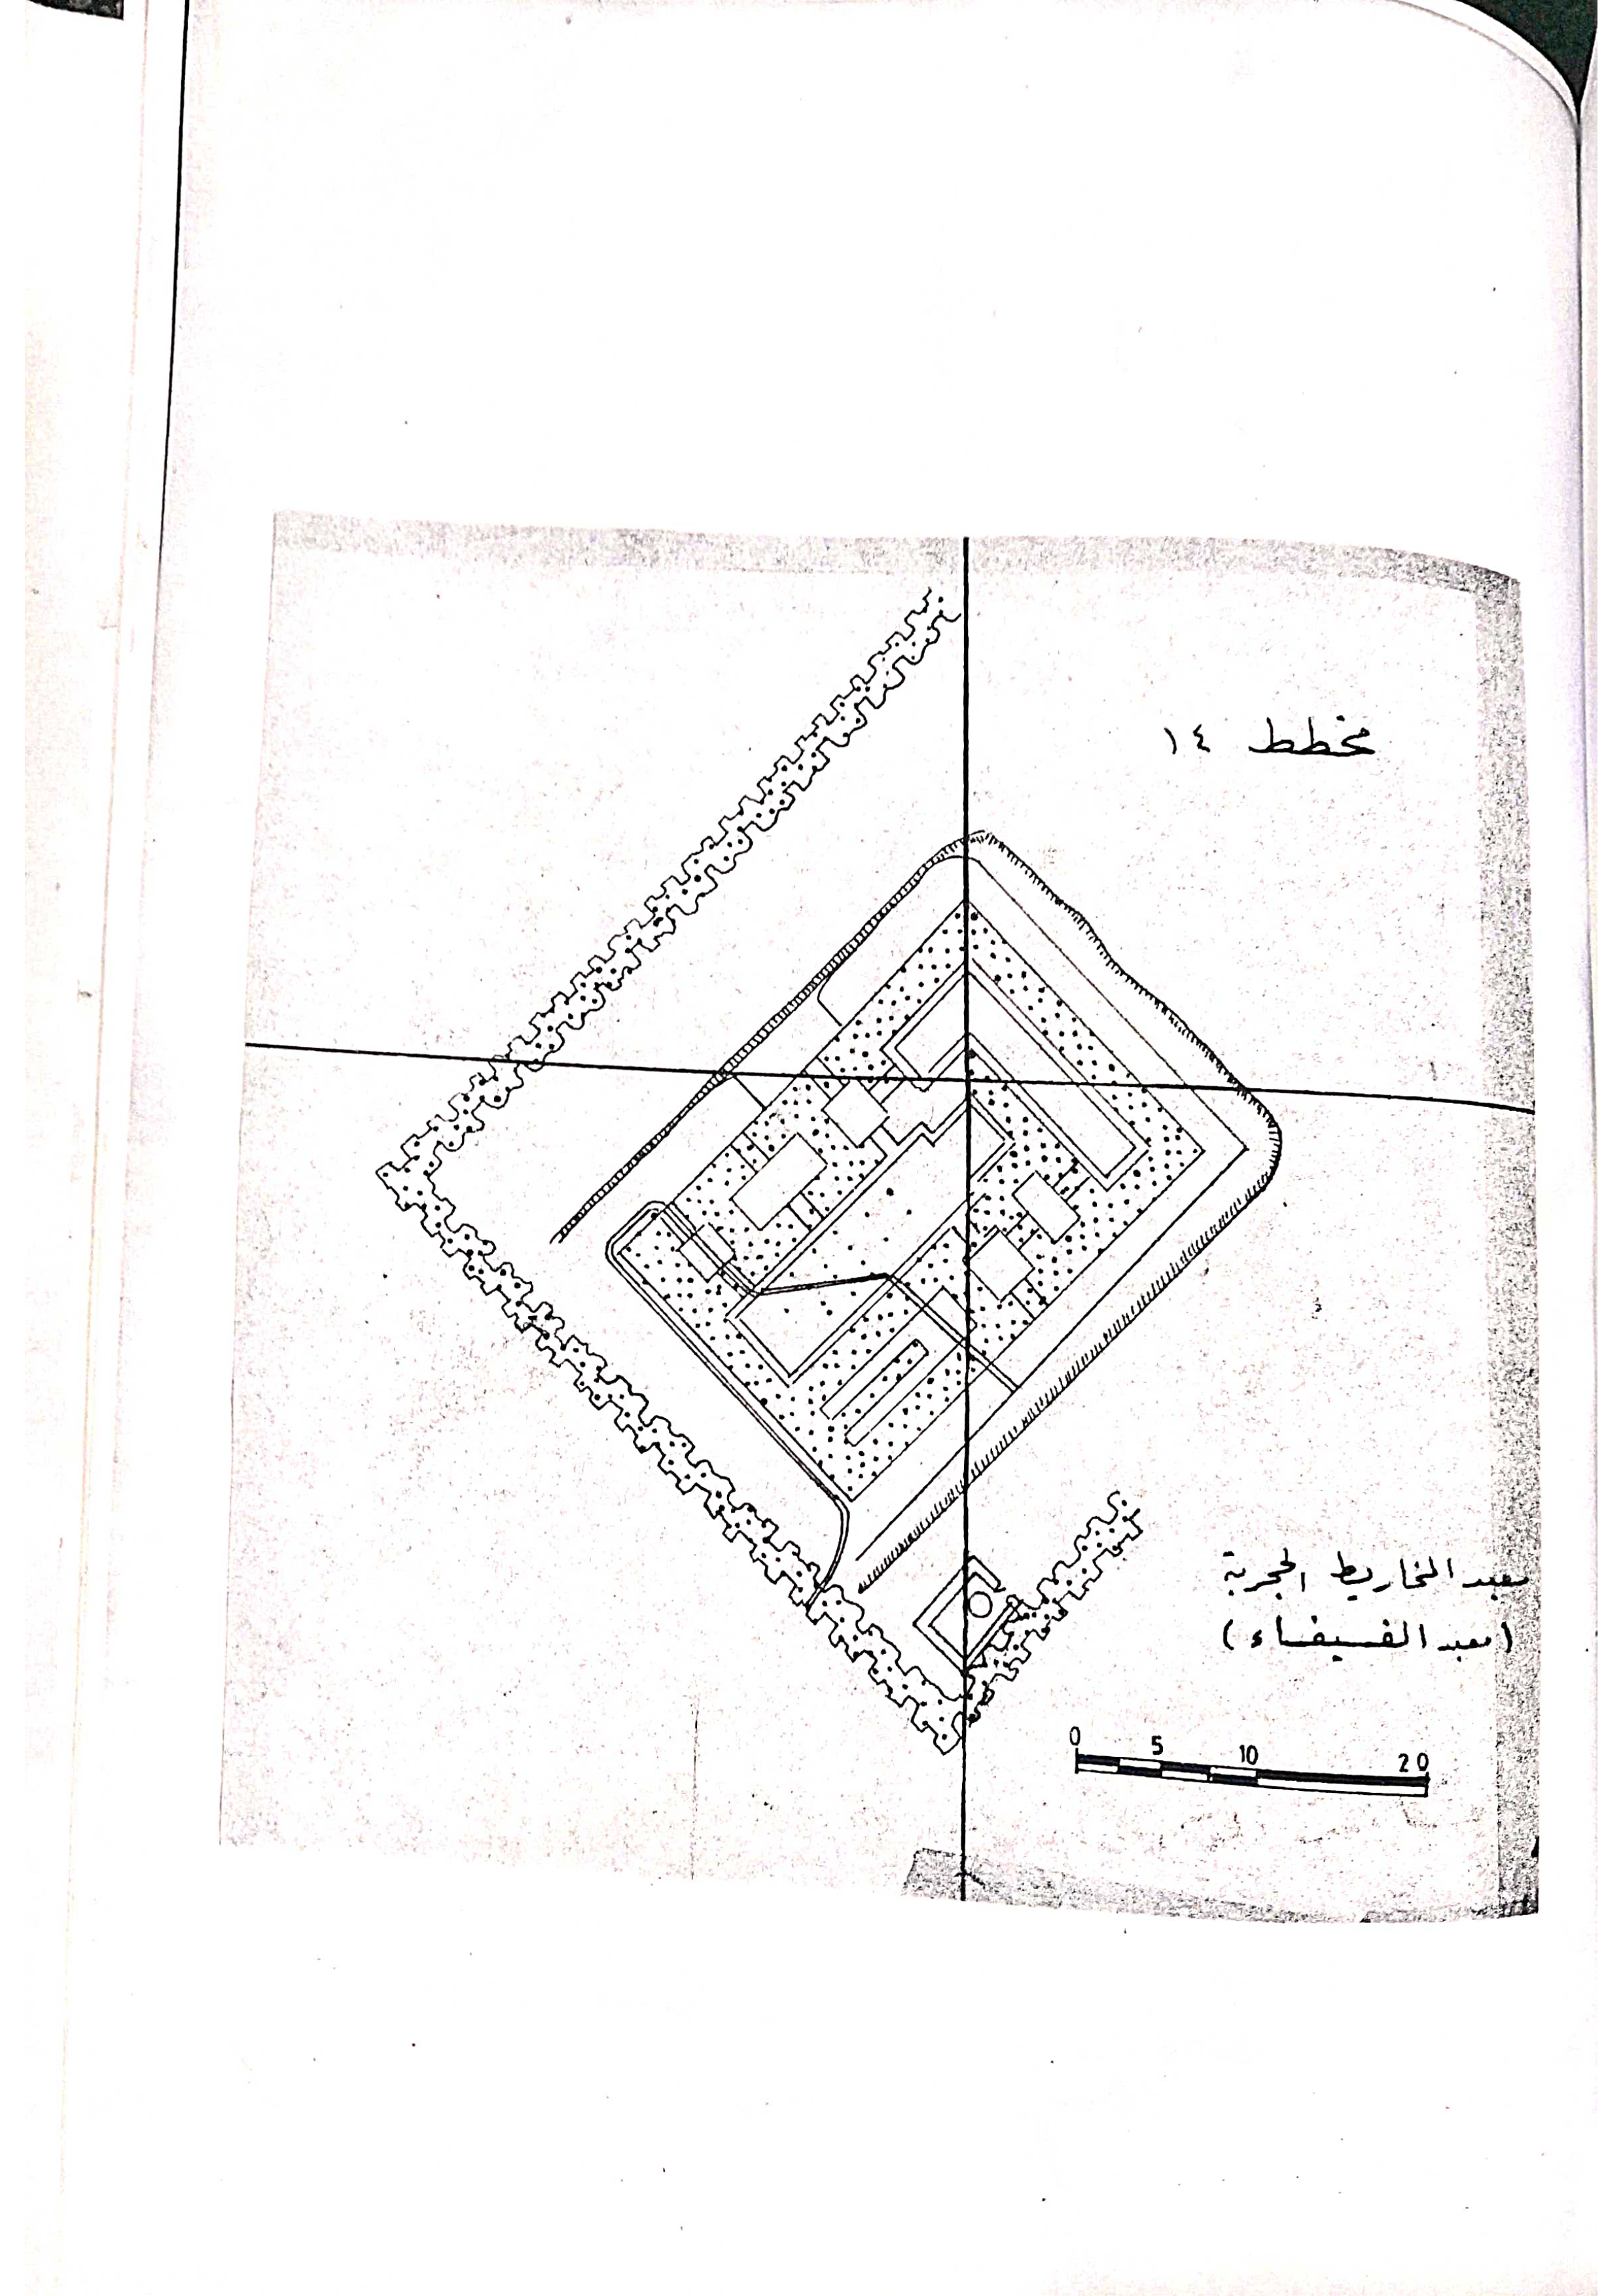 مخطط ١٤
معبد المخاريط الحجرية
(معبد الفسيفساء)
0 5 10 20